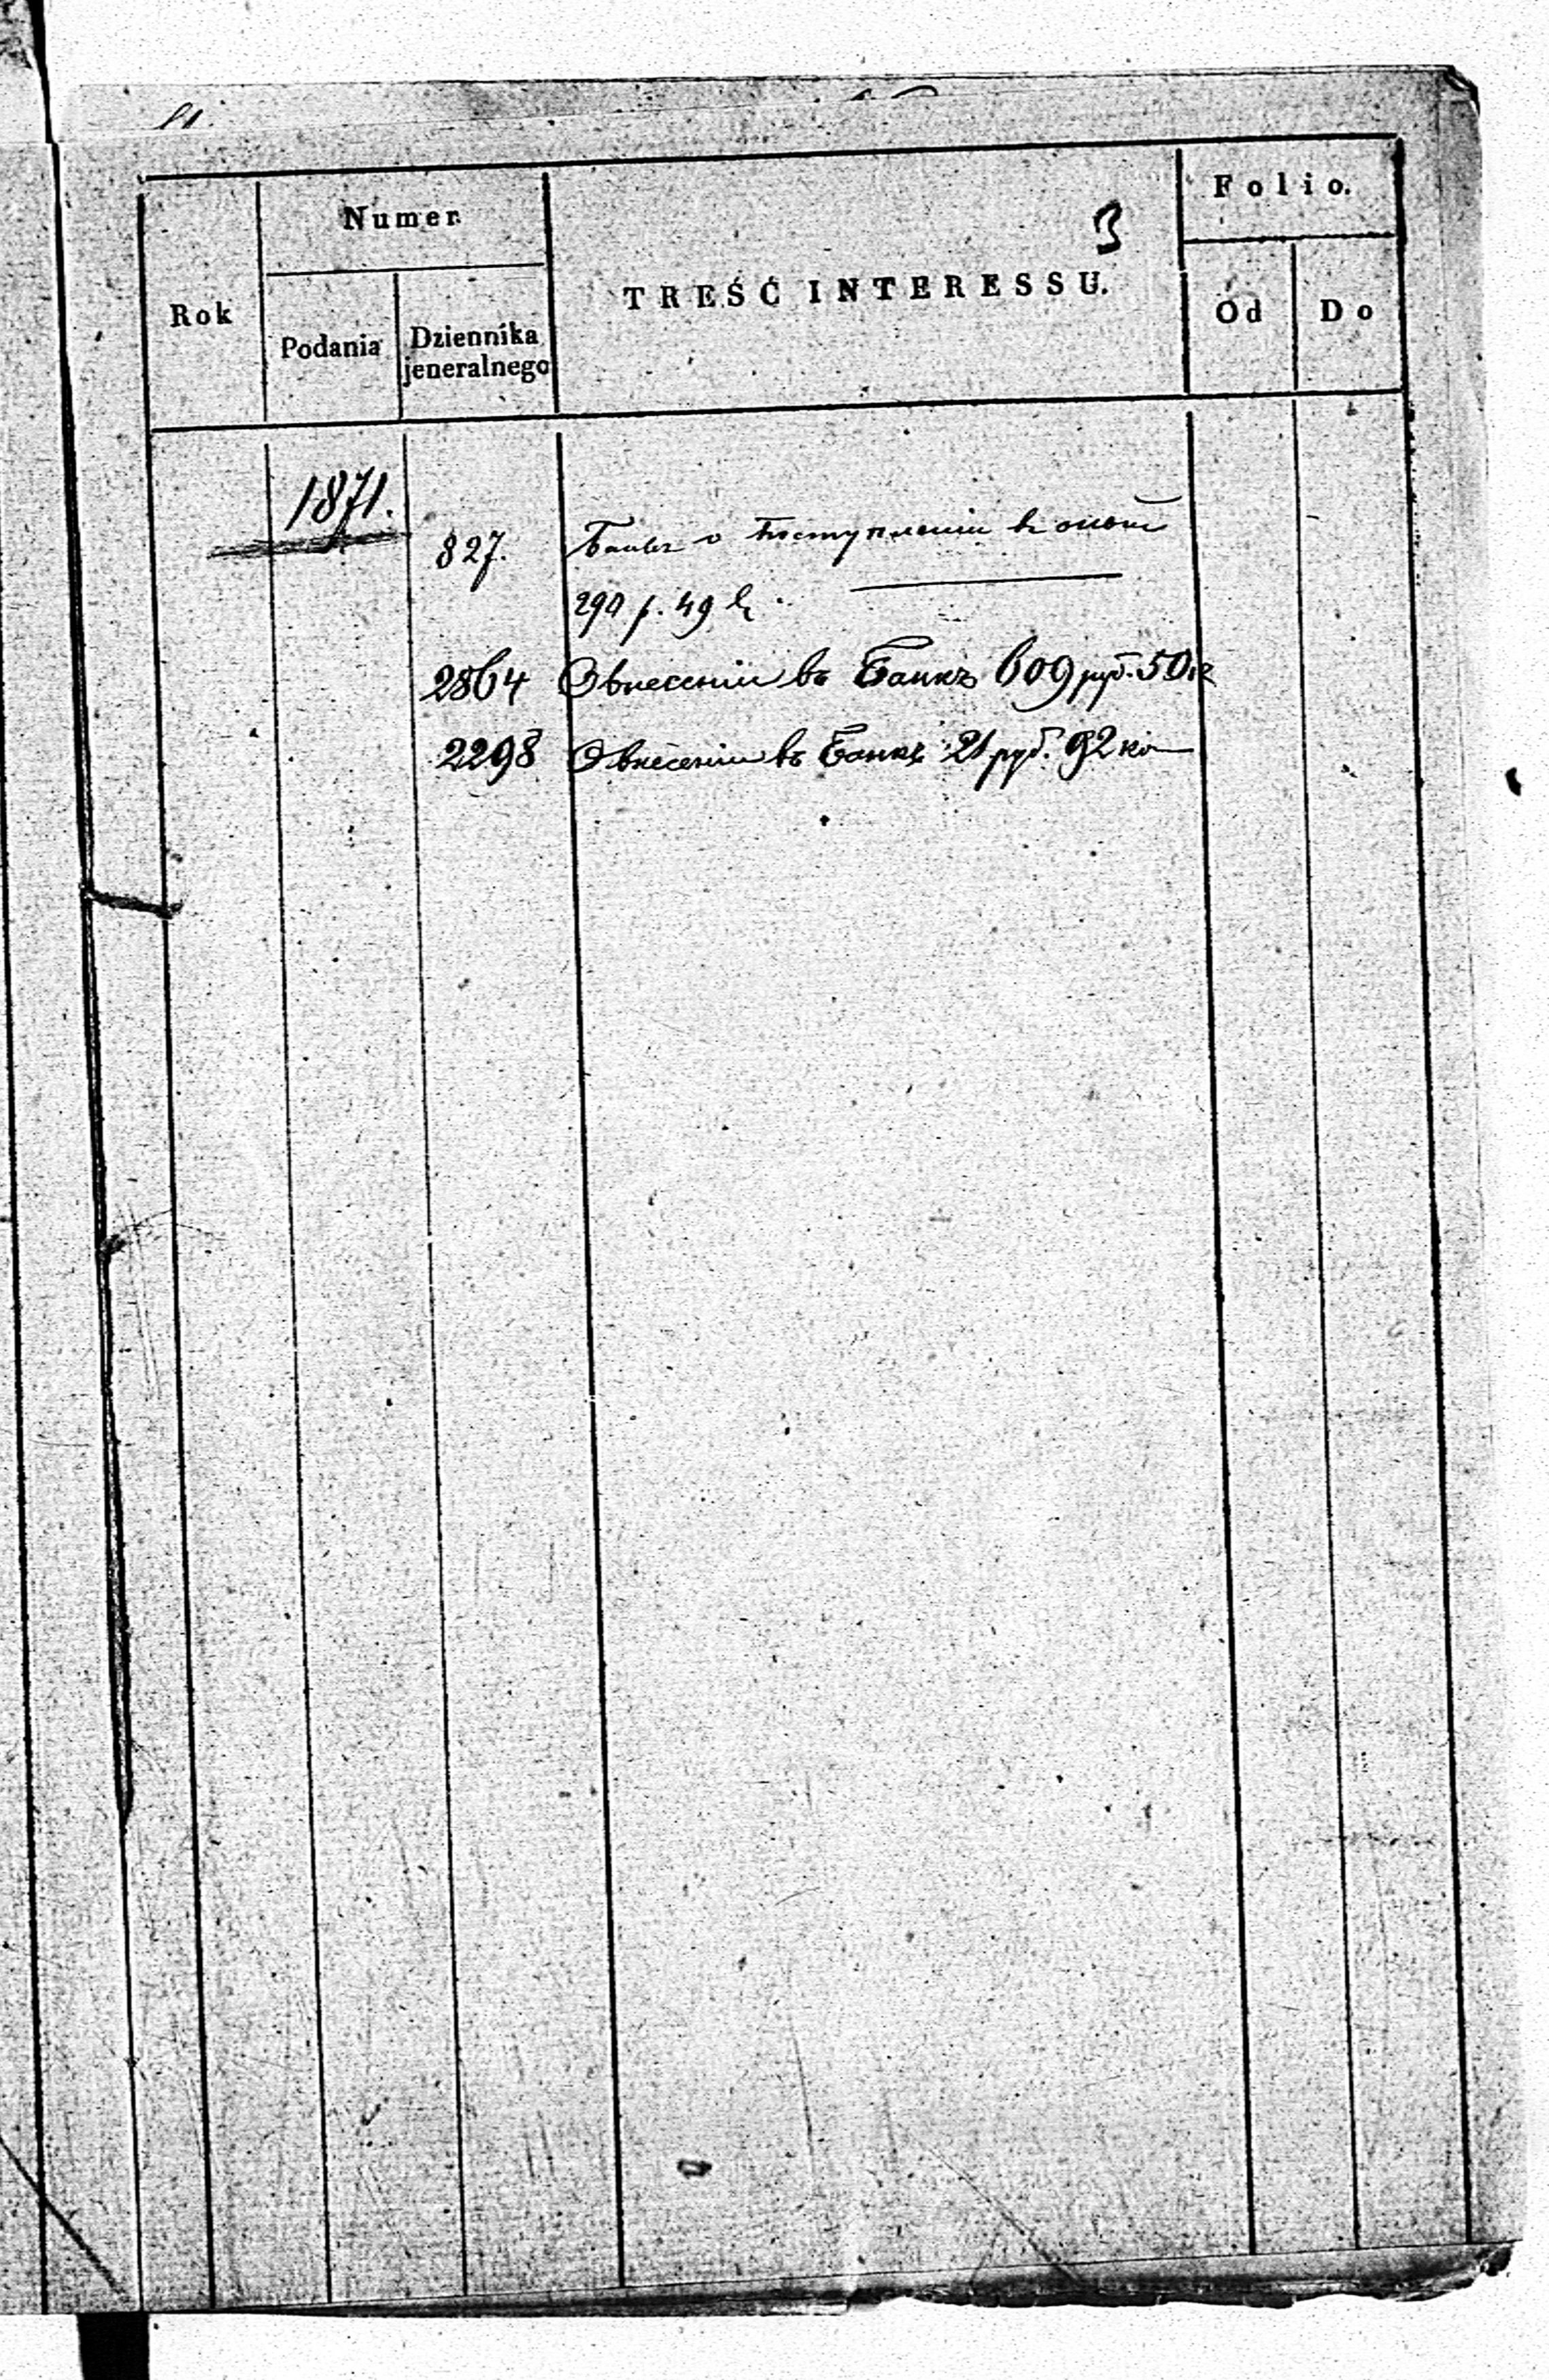 3
Numer
Folio.
Rok
TREŚĆ INTERESSU.
Od
Do
Podania
Dziennika
jeneralnego
1871.
827. Банкъ о поступленіи въ оный
290 р. 49 к.
2864 О внесеніи въ Банкъ 609 руб. 50 к
2298 О внесеніи въ Банкъ 21 руб. 92 ко